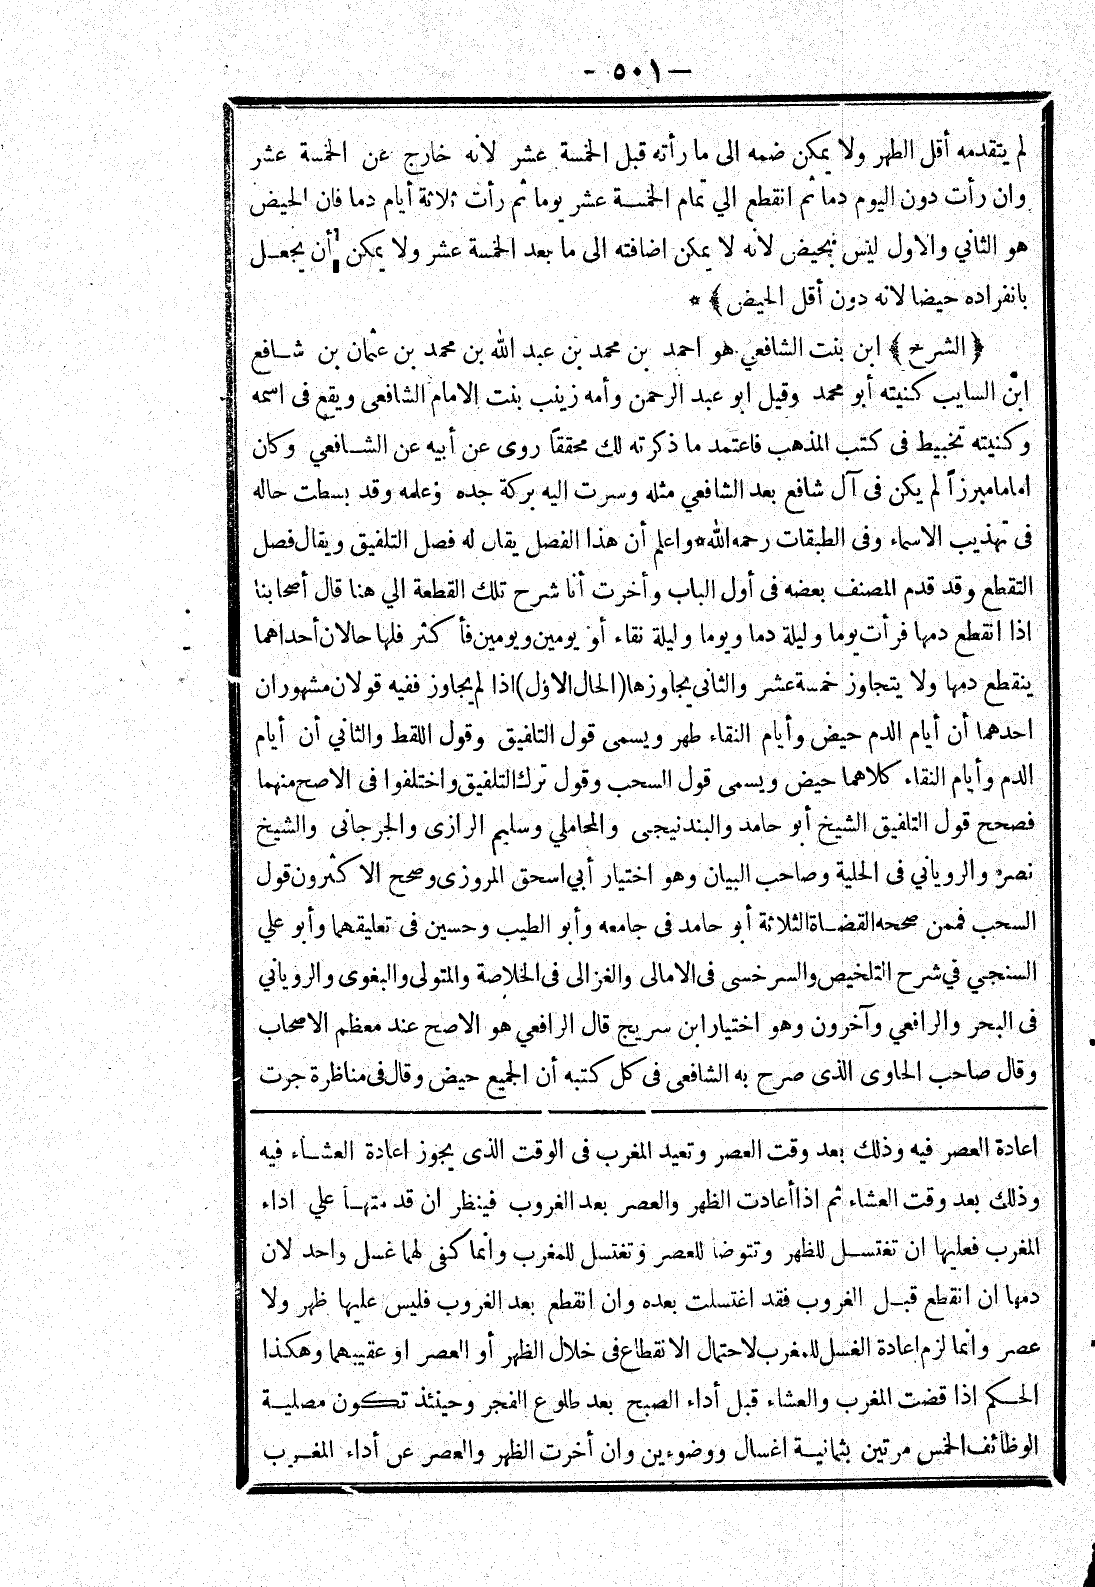 — ٥٠١ -
لم يتقدمه أقل الطهر ولا يمكن ضمه الى ما رأته قبل الخمسة عشر لانه خارج عن الخمسة عشر
وان رأت دون اليوم دما ثم انقطع الي تمام الخمسة عشر يوما ثم رأت ثلاثة أيام دما فان الحيض
هو الثاني والاول ليس بحيض لانه لا يمكن اضافته الى ما بعد الخمسة عشر ولا يمكن أن يجعل
بانفراده حيضا لانه دون أقل الحيض ﴾ *
﴿ الشرح ﴾ ابن بنت الشافعي هو احمد بن محمد بن عبد الله بن محمد بن عثمان بن شافع
ابن السايب كنيته أبو محمد وقيل ابو عبد الرحمن وأمه زينب بنت الامام الشافعى ويقع فى اسمه
وكنيته تخبيط فى كتب المذهب فاعتمد ما ذكرته لك محققاً روى عن أبيه عن الشافعي وكان
اماما مبرزاً لم يكن فى آل شافع بعد الشافعي مثله وسرت اليه بركة جده وعلمه وقد بسطت حاله
فى تهذيب الاسماء وفى الطبقات رحمه الله * واعلم أن هذا الفصل يقال له فصل التلفيق ويقال فصل
التقطع وقد قدم المصنف بعضه فى أول الباب وأخرت أنا شرح تلك القطعة الي هنا قال أصحابنا
اذا انقطع دمها فرأت يوما وليلة دما ويوما وليلة نقاء أو يومين ويومين فأكثر فلها حالان أحداهما
ينقطع دمها ولا يتجاوز خمسة عشر والثانى يجاوزها (الحال الاول) اذا لم يجاوز ففيه قولان مشهوران
احدهما أن أيام الدم حيض وأيام النقاء طهر ويسمى قول التلفيق وقول اللقط والثاني أن أيام
الدم وأيام النقاء كلاهما حيض ويسمى قول السحب وقول ترك التلفيق واختلفوا فى الاصح منهما
فصحح قول التلفيق الشيخ أبو حامد والبندنيجى والمحاملي وسليم الرازى والجرجانى والشيخ
نصره والروياني فى الحلية وصاحب البيان وهو اختيار أبي اسحق المروزى وصحح الاكثرون قول
السحب فممن صححه القضاة الثلاثة أبو حامد فى جامعه وأبو الطيب وحسين فى تعليقهما وأبو علي
السنجي في شرح التلخيص والسرخسى فى الامالى والغزالى فى الخلاصة والمتولى والبغوى والروياني
فى البحر والرافعي وآخرون وهو اختيار ابن سريج قال الرافعي هو الاصح عند معظم الاصحاب
وقال صاحب الحاوى الذى صرح به الشافعى فى كل كتبه أن الجميع حيض وقال فى مناظرة جرت
اعادة العصر فيه وذلك بعد وقت العصر وتعيد المغرب فى الوقت الذى يجوز اعادة العشاء فيه
وذلك بعد وقت العشاء ثم اذا أعادت الظهر والعصر بعد الغروب فينظر ان قد متهـا علي اداء
المغرب فعليها ان تغتسل للظهر وتتوضا للعصر وتغتسل للمغرب وانما كفى لهما غسل واحد لان
دمها ان انقطع قبل الغروب فقد اغتسلت بعده وان انقطع بعد الغروب فليس عليها ظهر ولا
عصر وانما لزم اعادة الغسل للمغرب لاحتمال الانقطاع فى خلال الظهر أو العصر او عقيبهما وهكذا
الحكم اذا قضت المغرب والعشاء قبل أداء الصبح بعد طلوع الفجر وحينئذ تكون مصلية
الوظائف الخمس مرتين بثمانية اغسال ووضوءين وان أخرت الظهر والعصر عن أداء المغرب